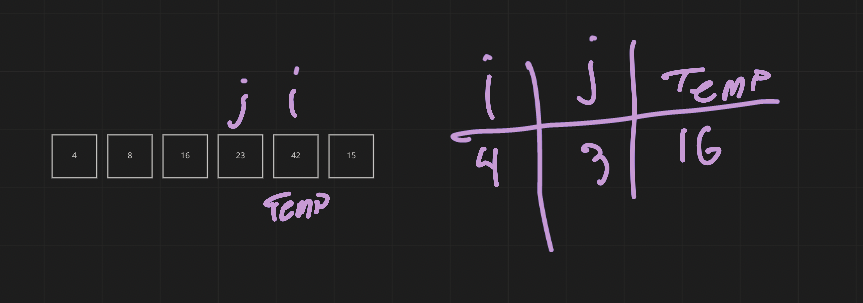 j i
4 8 16 23 42 15
Temp
i j Temp
4 3 16